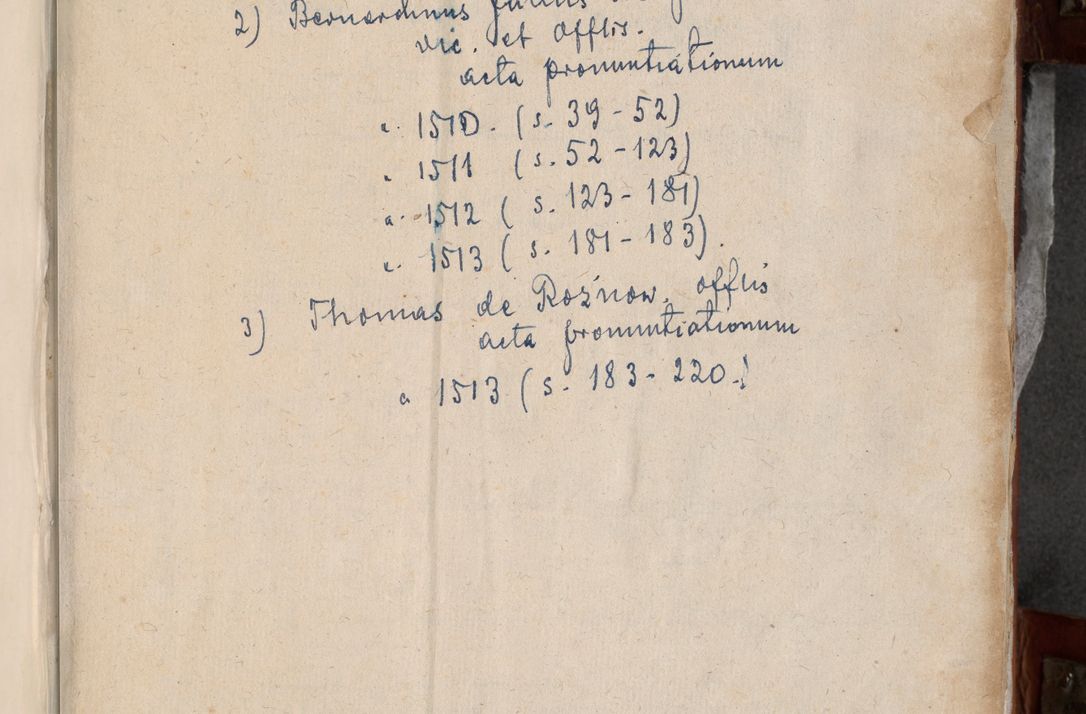 2) Bernardinus
vic. et offlis.
acta pronuntiationum
a. 1510. (s. 39 - 52)
a. 1511 (s. 52 - 123)
a. 1512 (s. 123 - 181)
a. 1513 (s. 181 - 183).
3) Thomas de Rożnow, offlis
acta pronuntiationum
a 1513 (s. 183 - 220.)